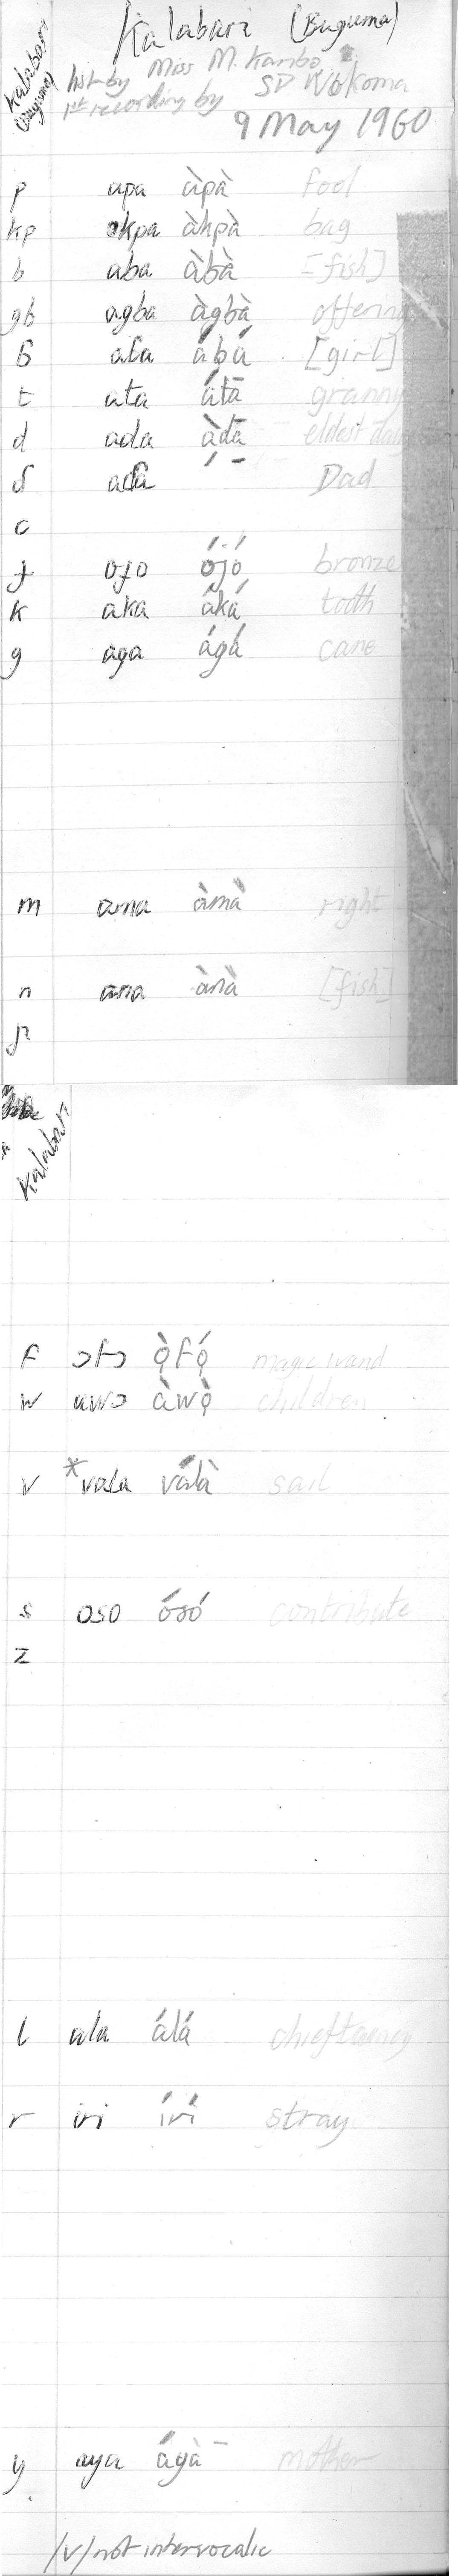 Kalabari (Buguma)
Kalabari (Buguma)
list by Miss M. Karibo
1st recording by SD Wokoma
9 May 1960
p apa àpà fool
kp akpa àkpà bag
b aba àbà [fish]
gb agba àgbà offering
ɓ aɓa áɓá [girl]
t ata átā granny
d ada àdā eldest
ɗ aɗa ́ ̄ Dad
c
ɟ oɟo óɟó bronze
k aka áká tooth
g aga ágá cane
m ama àmà right
n ana ànà [fish]
ɲ
Kalabari
f ɔfɔ ọ̀fọ́ magic wand
w awɔ àwọ̀ children
v *vala válà sail
s oso ósó contribute
z
l ala álá chieftaincy
r iri írí stray
y aya áyā mother
/v/ not intervocalic